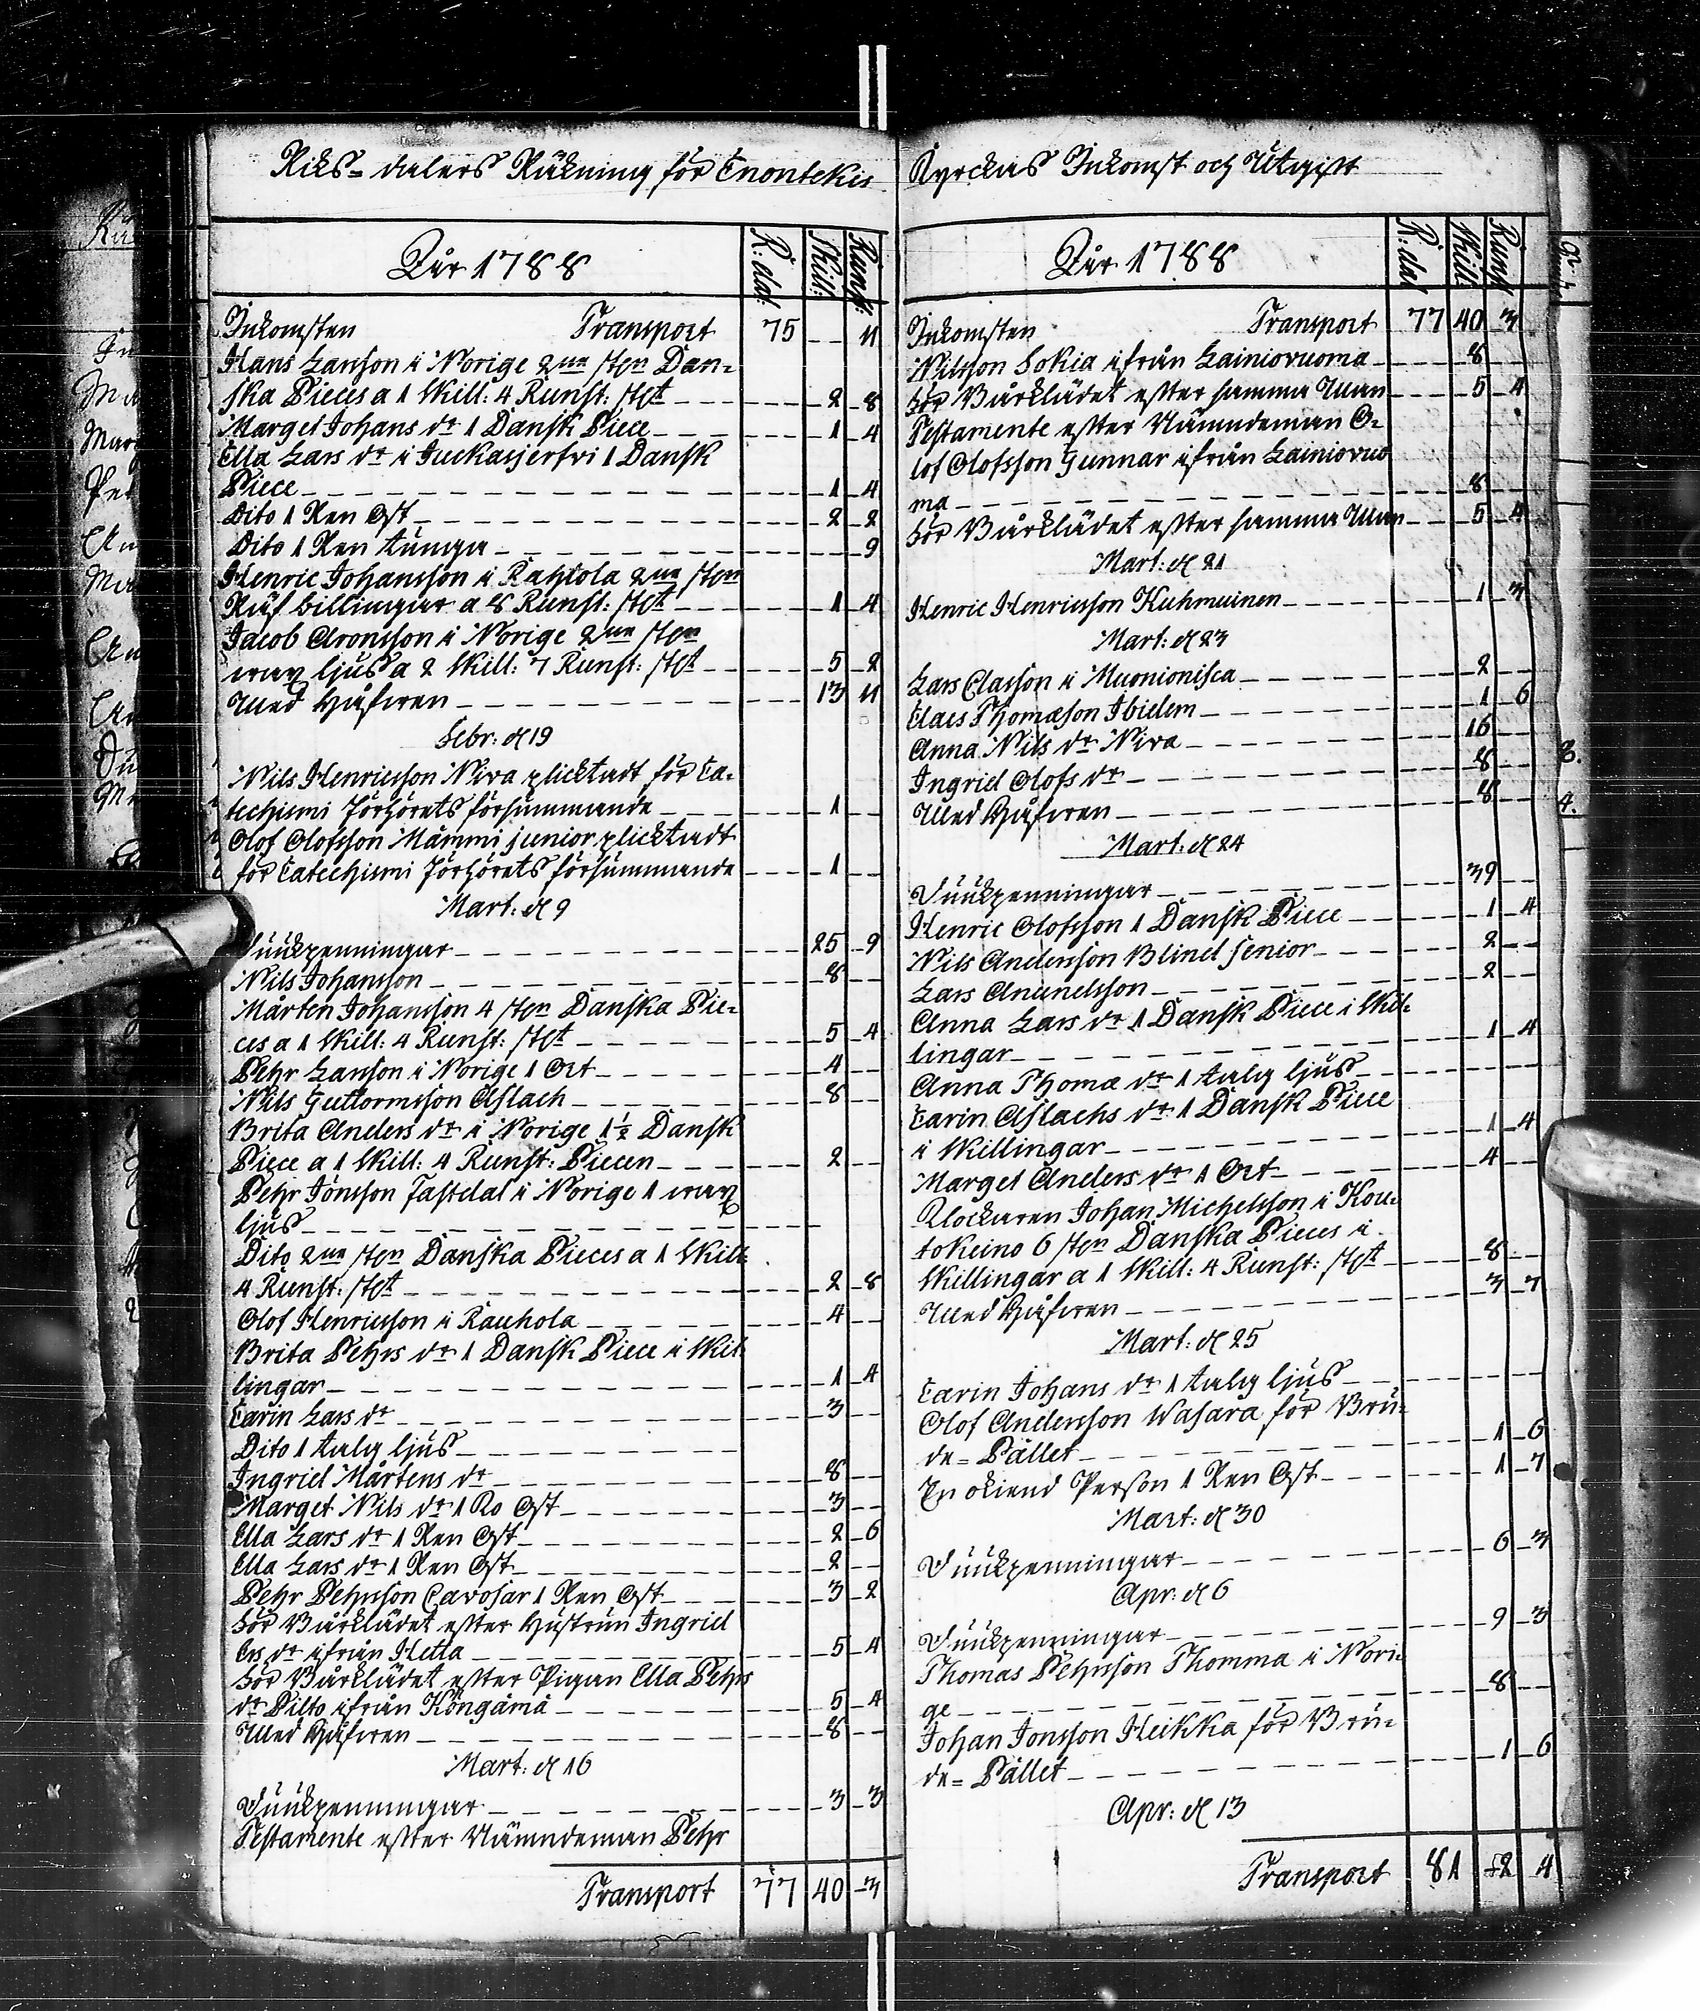 Riks-dalers Räkning för Enontekis Kyrckas Inkomst och Utgift
År 1788 R:dal: Skill: Runst:
Inkomsten Transport 75 -- 11
Hans Larsson i Norige 2ne st:n Dan-
ska Pieces a 1 Skill: 4 Runst: st:t 2 8
Marget Johans dr 1 Dansk Piece 1 4
Ella Lars dr i Juckasjerfvi 1 Dansk
Piece 1 4
Dito 1 Ren Ost 2 2
Dito 1 Ren tunga 9
Henric Johansson i 2ne st:n
Räf billingar a 8 Runst: st:t 1 4
Jacob Aronsson i Norige 2ne st:n
wax ljus a 2 Skill: 7 Runst: st:t 5 2
Med Håfwen 13 11
Febr: d 19
Nils Henricsson Niva plicktadt för Ca-
techismi förhörets försummande 1
Olof Olofsson Mämmi junior plicktadt
för Catechismi förhörets försummande 1
Mart: d 9
Fuukpenningar 25 9
Nils Johansson 8
Mårten Johansson 4 st:n Danska Pie-
ces a 1 Skill: 4 Runst: st:t 5 4
Pehr Larsson i Norige 1 Ort 4
Nils Guttormsson Aslach 8
Brita Anders dr i Norige 1 1/2 Dansk
Piece a 1 Skill: 4 Runst: Piecen 2
Pehr Jönsson Fastdal i Norige 1 wax
ljus
Dito 2ne st:n Danska Pieces a 1 Skill:
4 Runst: st:t 2 8
Olof Henricsson i Rauhola 4
Brita Pehrs dr 1 Dansk Piece i Skil-
lingar 1 4
Carin Lars dr 3
Dito 1 talg ljus
Ingrid Mårtens dr 8
Marget Nils dr 1 Ko Ost 3
Ella Lars dr 1 Ren Ost 2 6
Ella Lars dr 1 Ren Ost 2
Pehr Pehrsson Cavosar 1 Ren Ost 3 2
För Bårklädet efter Hustrun Ingrid
Ers dr ifrån Hetta 5 4
För Bårklädet efter Pigan Ella Pehrs
dr Pilto ifrån Köngämä 5 4
Med Håfwen 8
Mart: d 16
Fuukpenningar 3 3
Testamente efter Nämndeman Pehr
Transport 77 40 3
År 1788 R:dal Skill: Runst
Inkomsten Transport 77 40 3
Nilsson Sokia ifrån Lainiovuoma 8
För Bårklädet efter samma Man 5 4
Testamente efter Nämndeman O-
lof Olofsson Gunnar ifrån Lainiovuo
ma 8
För Bårklädet efter samma Man 5 4
Mart: d 21
Henric Henricsson Kuhmuinen 1 3
Mart: d 23
Lars Classon i Muonionisca 2
Claes Thomæson Ibidem 1 6
Anna Nils dr Niva 16
Ingrid Olofs dr 8
Med Håfwen 8
Mart: d 24
Fuukpenningar 39
Henric Olofsson 1 Dansk Piece 1 4
Nils Andersson Blind senior 2
Lars Anundsson 2
Anna Lars dr 1 Dansk Piece i Skil-
lingar 1 4
Anna Thomæ dr 1 talg ljus
Carin Aslachs dr 1 Dansk Piece
i Skillingar 1 4
Marget Anders dr 1 Ort 4
Klockaren Johan Michelsson i Kou-
tokeino 6 st:n Danska Pieces i
Skillingar a 1 Skill: 4 Runst: st:t 8
Med Håfwen 3 7
Mart: d 25
Carin Johans dr 1 talg ljus
Olof Andersson Wasara för Bru-
de-Pallet 1 6
En okiend Person 1 Ren Ost 1 7
Mart: d 30
Fuukpenningar 6 3
Apr: d 6
Fuukpenningar 9 3
Thomas Pehrsson Thomma i Nori-
ge 8
Johan Jonsson Heikka för Bru-
de-Pallet 1 6
Apr: d 13
Transport 81 2 4